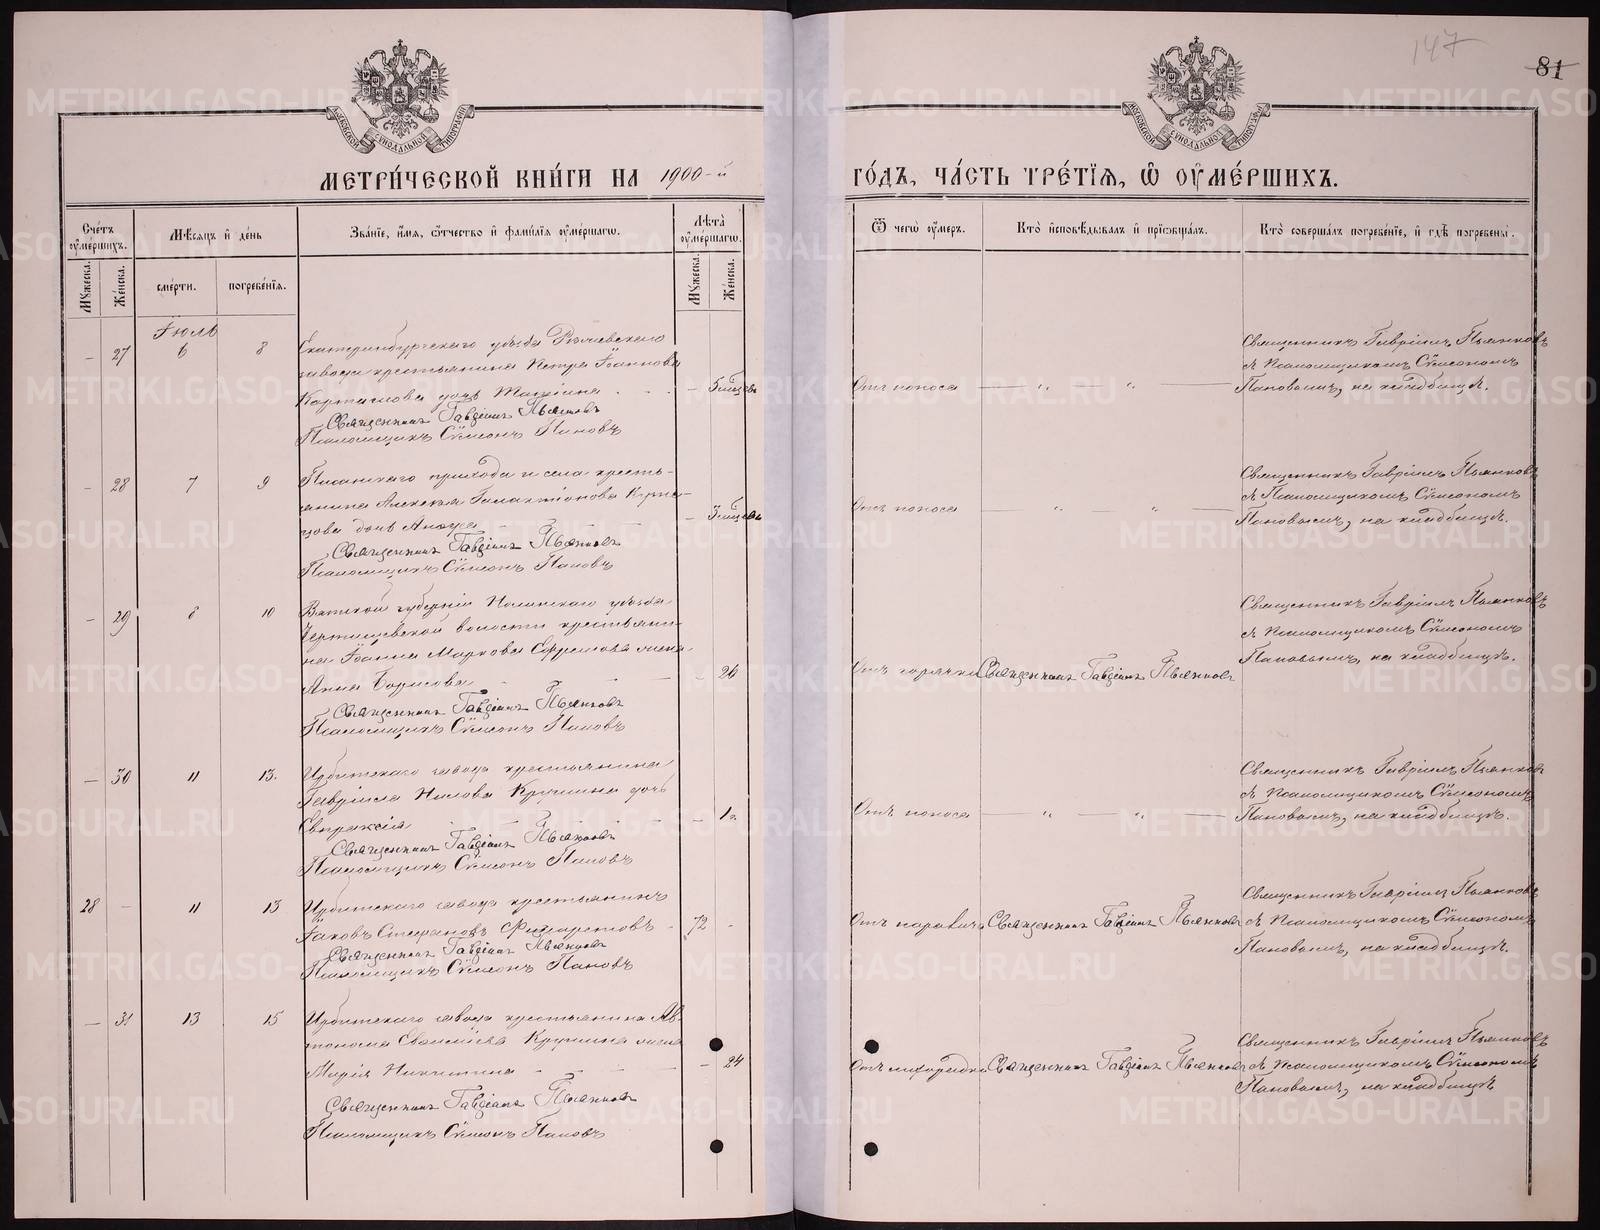 147
81
МЕТРИ́ЧЕСКОЙ КНИ́ГИ НА 1900-й
ГО́ДЪ, ЧА́СТЬ ТРЕ́ТЇѦ, Ѿ ОУМЕ́РШИХЪ.
Сче́тъ оуме́ршихъ.
Мѣ́сяцъ и де́нь
Зва́нїе, и́мя, ѻ́тчество и фами́лїя оуме́ршагѡ.
Лѣта̀ оуме́ршагѡ.
Ѿ чегѡ̀ оу́меръ.
Кто̀ и́сповѣ́дывалъ и прїѡбща́лъ.
Кто̀ соверша́лъ погребе́нїе, и гдѣ̀ погребены̀.
Му́жеска.
Же́нска.
сме́рти.
погребе́нїя.
Му́жеска.
Же́нска.
Іюль
– 27 6 8
Екатеринбургскаго уѣзда
завода крестьянина Петра Іоаннова
дочь
Священникъ Гавріилъ Пьянковъ
Псаломщикъ Сѵмеонъ Пановъ
– 5 мѣсяц
Отъ поноса
Священникъ Гавріилъ Пьянковъ
съ Псаломщикомъ Сѵмеономъ
Пановымъ, на кладбищѣ.
– 28 7 9
Писанскаго прихода и села кресть-
янина Алексѣя Галактіонова Кузне-
цова дочь
Священникъ Гавріилъ Пьянковъ
Псаломщикъ Сѵмеонъ Пановъ
– 3 мѣсяц
Отъ поноса
Священникъ Гавріилъ Пьянковъ
съ Псаломщикомъ Сѵмеономъ
Пановымъ, на кладбищѣ.
– 29 8 10
Вятской губерніи Нолинскаго уѣзда
волости крестьяни-
на Іоанна Маркова Ефремова жена
Анна Борисова
Священникъ Гавріилъ Пьянковъ
Псаломщикъ Сѵмеонъ Пановъ
– 26
Отъ горячки
Священникъ Гавріилъ Пьянковъ
Священникъ Гавріилъ Пьянковъ
съ Псаломщикомъ Сѵмеономъ
Пановымъ, на кладбищѣ.
– 30 11 13.
Ирбитскаго завода крестьянина
Гавріила Нилова Крушина дочь
Евпраксія
Священникъ Гавріилъ Пьянковъ
Псаломщикъ Сѵмеонъ Пановъ
– 1 г.
Отъ поноса
Священникъ Гавріилъ Пьянковъ
съ Псаломщикомъ Сѵмеономъ
Пановымъ, на кладбищѣ.
28 – 11 13
Ирбитскаго завода крестьянинъ
Іаковъ Стефановъ Филаретовъ
Священникъ Гавріилъ Пьянковъ
Псаломщикъ Сѵмеонъ Пановъ
72 –
Отъ паралича
Священникъ Гавріилъ Пьянковъ
Священникъ Гавріилъ Пьянковъ
съ Псаломщикомъ Сѵмеономъ
Пановымъ, на кладбищѣ.
– 31 13 15
Ирбитскаго завода крестьянина Ав-
тонома Евсевіева Крушина жена
Марія Никитина
Священникъ Гавріилъ Пьянковъ
Псаломщикъ Сѵмеонъ Пановъ
– 24
Отъ лихорадки
Священникъ Гавріилъ Пьянковъ
Священникъ Гавріилъ Пьянковъ
съ Псаломщикомъ Сѵмеономъ
Пановымъ, на кладбищѣ.
METRIKI.GASO-URAL.RU